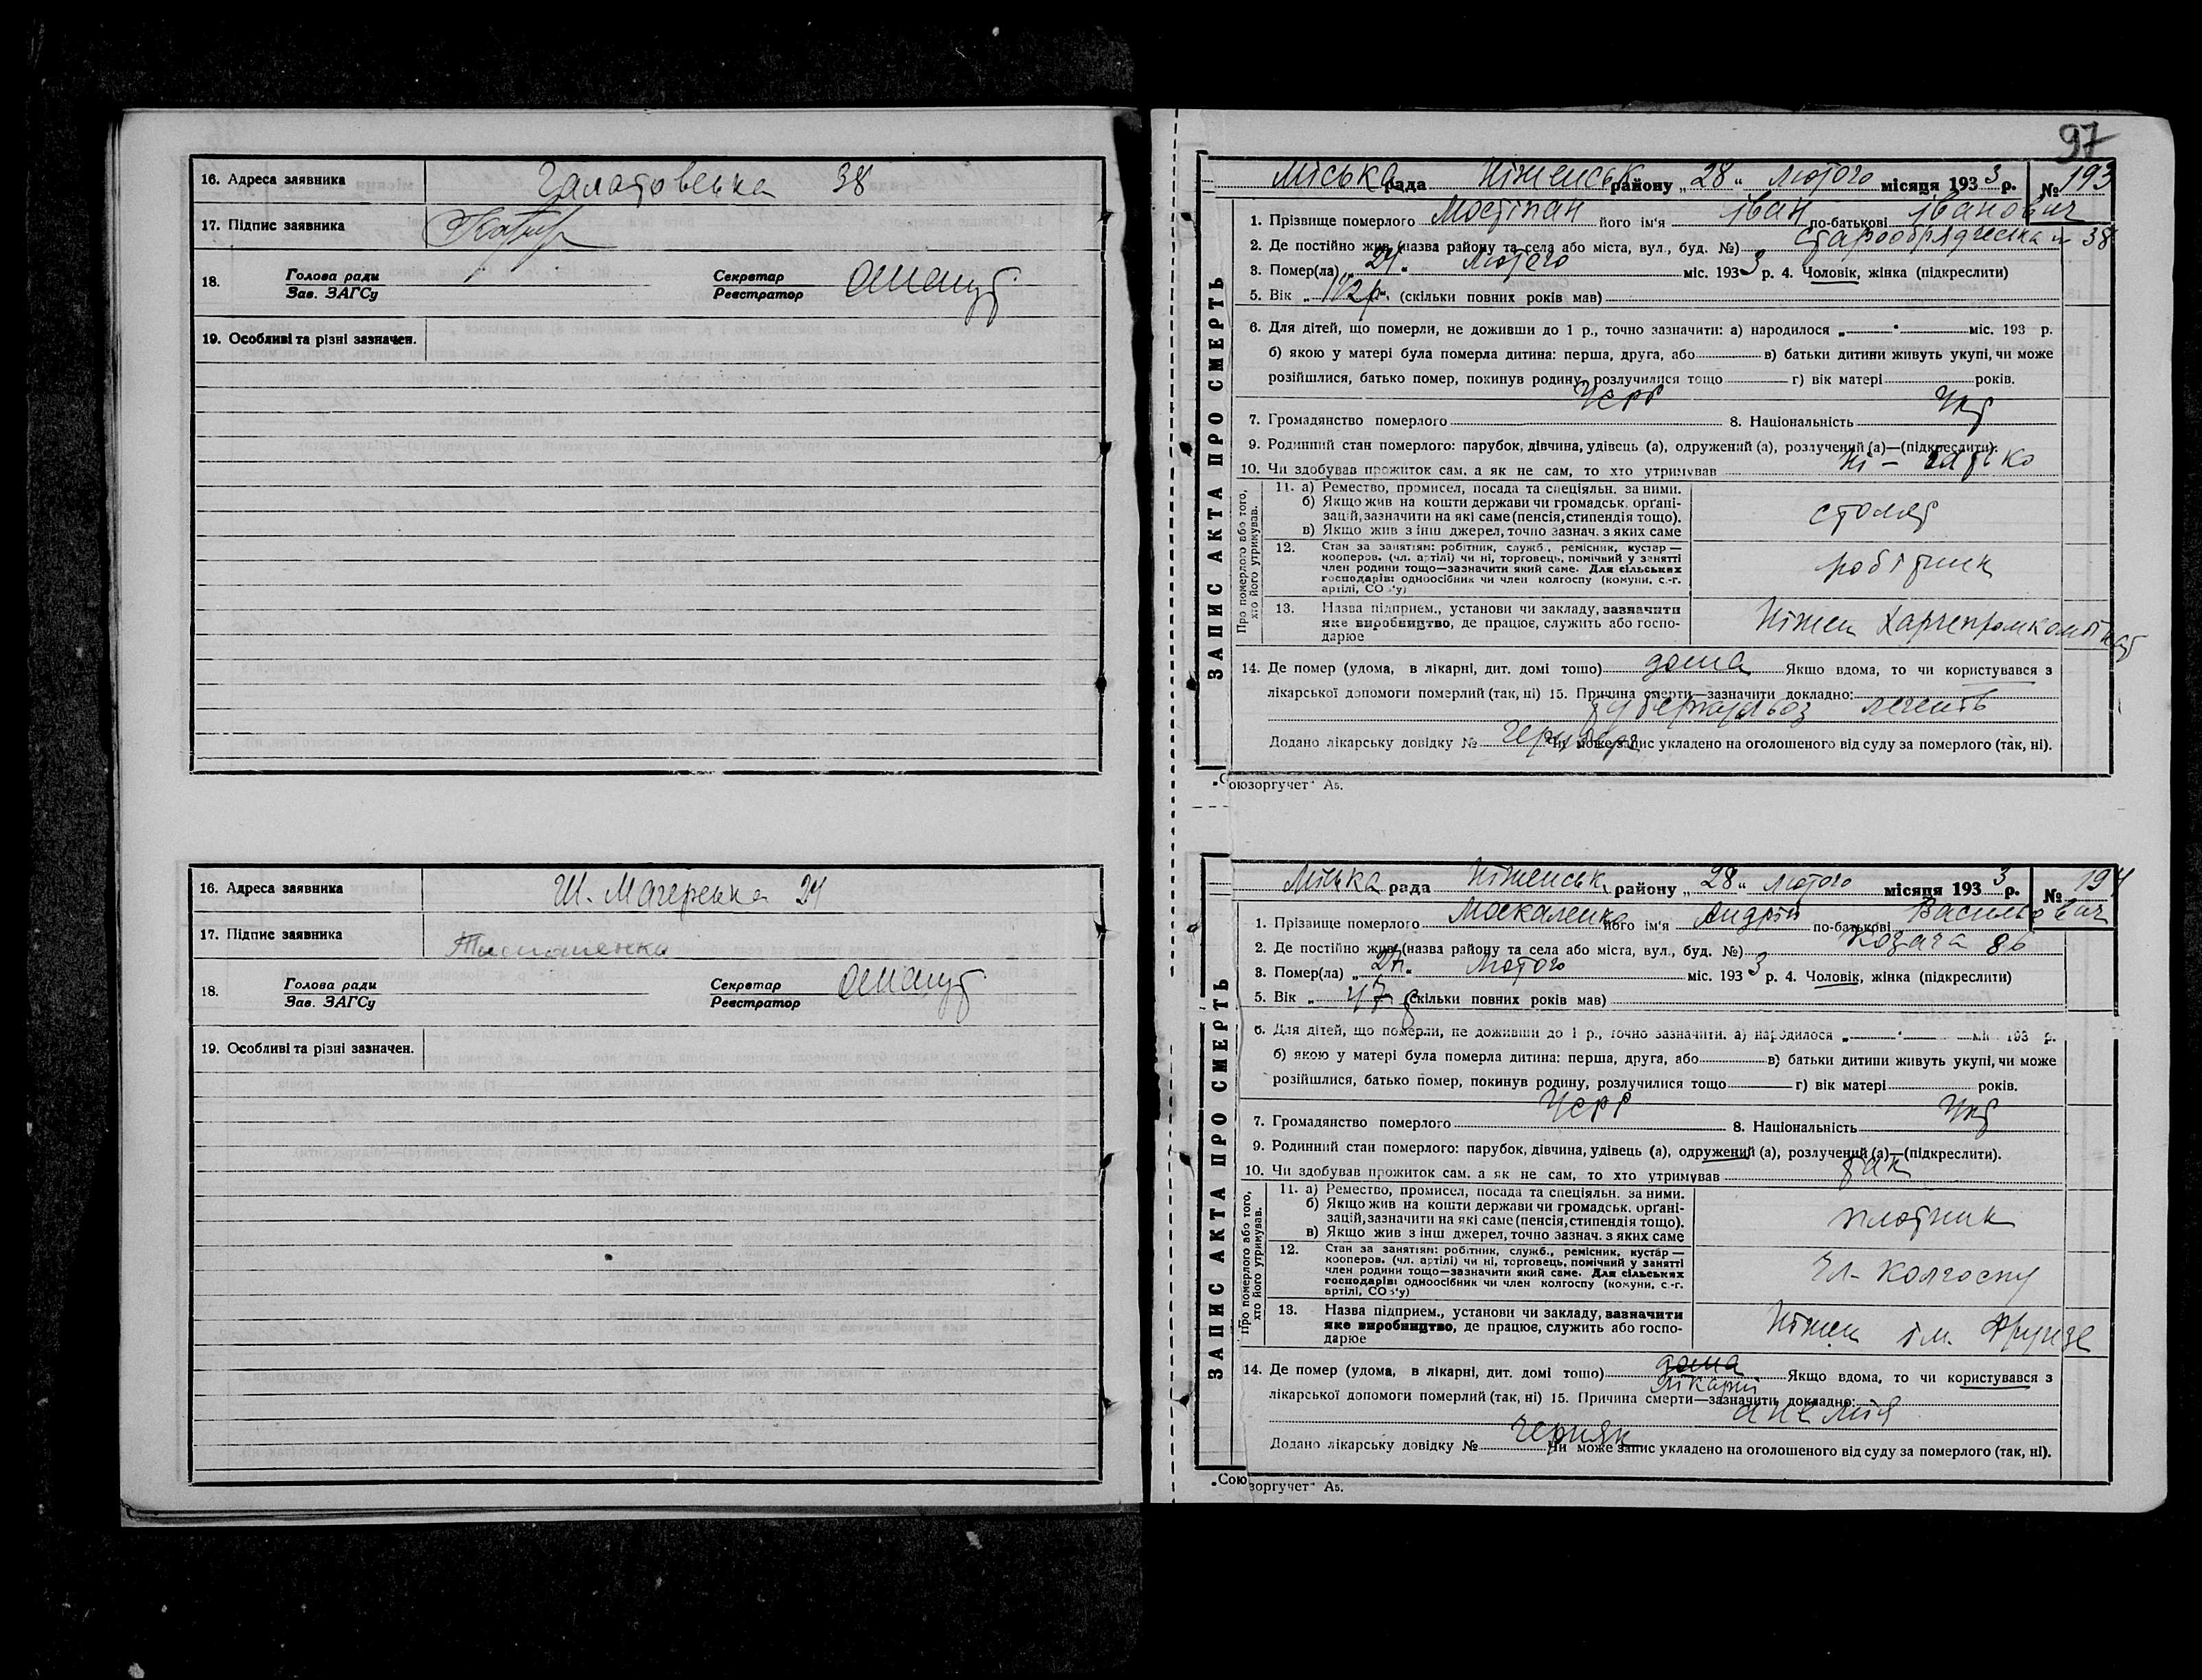 16. Адреса заявника Галатовська 38
17. Підпис заявника
18. Голова ради Секретар
Зав. ЗАГСу Реєстратор
19. Особливі та різні зазначен.
16. Адреса заявника Ш. Магерська 24
17. Підпис заявника Тимошенко
18. Голова ради Секретар
Зав. ЗАГСу Реєстратор
19. Особливі та різні зазначен.
97
Міська рада Ніженськ району „28“ лютого місяця 1933 р. № 193
ЗАПИС АКТА ПРО СМЕРТЬ
1. Прізвище померлого Мостіпан його ім'я Іван по-батькові Іванович
2. Де постійно жив (назва району та села або міста, вул., буд. №) Старообрядческа 38
3. Помер(ла) „24“ лютого міс. 1933 р. 4. Чоловік, жінка (підкреслити)
5. Вік „1 1/2 р“ (скільки повних років мав)
6. Для дітей, що померли, не доживши до 1 р., точно зазначити: а) народилося „ “ міс. 193 р.
б) якою у матері була померла дитина: перша, друга, або в) батьки дитини живуть укупі, чи може
розійшлися, батько помер, покинув родину, розлучилися тощо г) вік матері років.
7. Громадянство померлого УСРР 8. Національність Укр
9. Родинний стан померлого: парубок, дівчина, удівець (а), одружений (а), розлучений (а)—(підкреслити).
10. Чи здобував прожиток сам, а як не сам, то хто утримував Ні - батько
Про померлого або того, хто його утримував.
11. а) Ремество, промисел, посада та спеціяльн. за ними.
б) Якщо жив на кошти держави чи громадськ. орґані-
зацій, зазначити на які саме (пенсія, стипендія тощо).
в) Якщо жив з інш джерел, точно зазнач. з яких саме
столяр
12. Стан за заняттям: робітник, служб., ремісник, кустар —
кооперов. (чл. артілі) чи ні, торговець, помічний у занятті
член родини тощо—зазначити який саме. Для сільських
господарів: одноосібник чи член колгоспу (комуни, с.-г.
артілі, СОЗ'у)
робітник
13. Назва підприєм., установи чи закладу, зазначити
яке виробництво, де працює, служить або госпо-
дарює
Ніжен Харчепромкомбінат
14. Де помер (удома, в лікарні, дит. домі тощо) дома Якщо вдома, то чи користувався з
лікарської допомоги померлий (так, ні) 15. Причина смерти—зазначити докладно:
туберкульоз легень
Додано лікарську довідку № Чи може запис укладено на оголошеного від суду за померлого (так, ні).
„Союзоргучет“ А5.
Міська рада Ніженськ району „28“ лютого місяця 1933 р. № 194
ЗАПИС АКТА ПРО СМЕРТЬ
1. Прізвище померлого Москаленко його ім'я Андрій по-батькові Васильович
2. Де постійно жив (назва району та села або міста, вул., буд. №) Козача 86
3. Помер(ла) лютого міс. 1933 р. 4. Чоловік, жінка (підкреслити)
5. Вік „47 р (скільки повних років мав)
6. Для дітей, що померли, не доживши до 1 р., точно зазначити: а) народилося „ “ міс. 193 р.
б) якою у матері була померла дитина: перша, друга, або в) батьки дитини живуть укупі, чи може
розійшлися, батько помер, покинув родину, розлучилися тощо г) вік матері років.
7. Громадянство померлого УСРР 8. Національність Укр
9. Родинний стан померлого: парубок, дівчина, удівець (а), одружений (а), розлучений (а)—(підкреслити).
10. Чи здобував прожиток сам, а як не сам, то хто утримував так
Про померлого або того, хто його утримував.
11. а) Ремество, промисел, посада та спеціяльн. за ними.
б) Якщо жив на кошти держави чи громадськ. орґані-
зацій, зазначити на які саме (пенсія, стипендія тощо).
в) Якщо жив з інш джерел, точно зазнач. з яких саме
плотник
12. Стан за заняттям: робітник, служб., ремісник, кустар —
кооперов. (чл. артілі) чи ні, торговець, помічний у занятті
член родини тощо—зазначити який саме. Для сільських
господарів: одноосібник чи член колгоспу (комуни, с.-г.
артілі, СОЗ'у)
Чл- колгоспу
13. Назва підприєм., установи чи закладу, зазначити
яке виробництво, де працює, служить або госпо-
дарює
Ніжен ім. Фрунзе
14. Де помер (удома, в лікарні, дит. домі тощо) дома Якщо вдома, то чи користувався з
лікарні
лікарської допомоги померлий (так, ні) 15. Причина смерти—зазначити докладно:
анемія
Додано лікарську довідку № Черняк Чи може запис укладено на оголошеного від суду за померлого (так, ні).
„Союзоргучет“ А5.